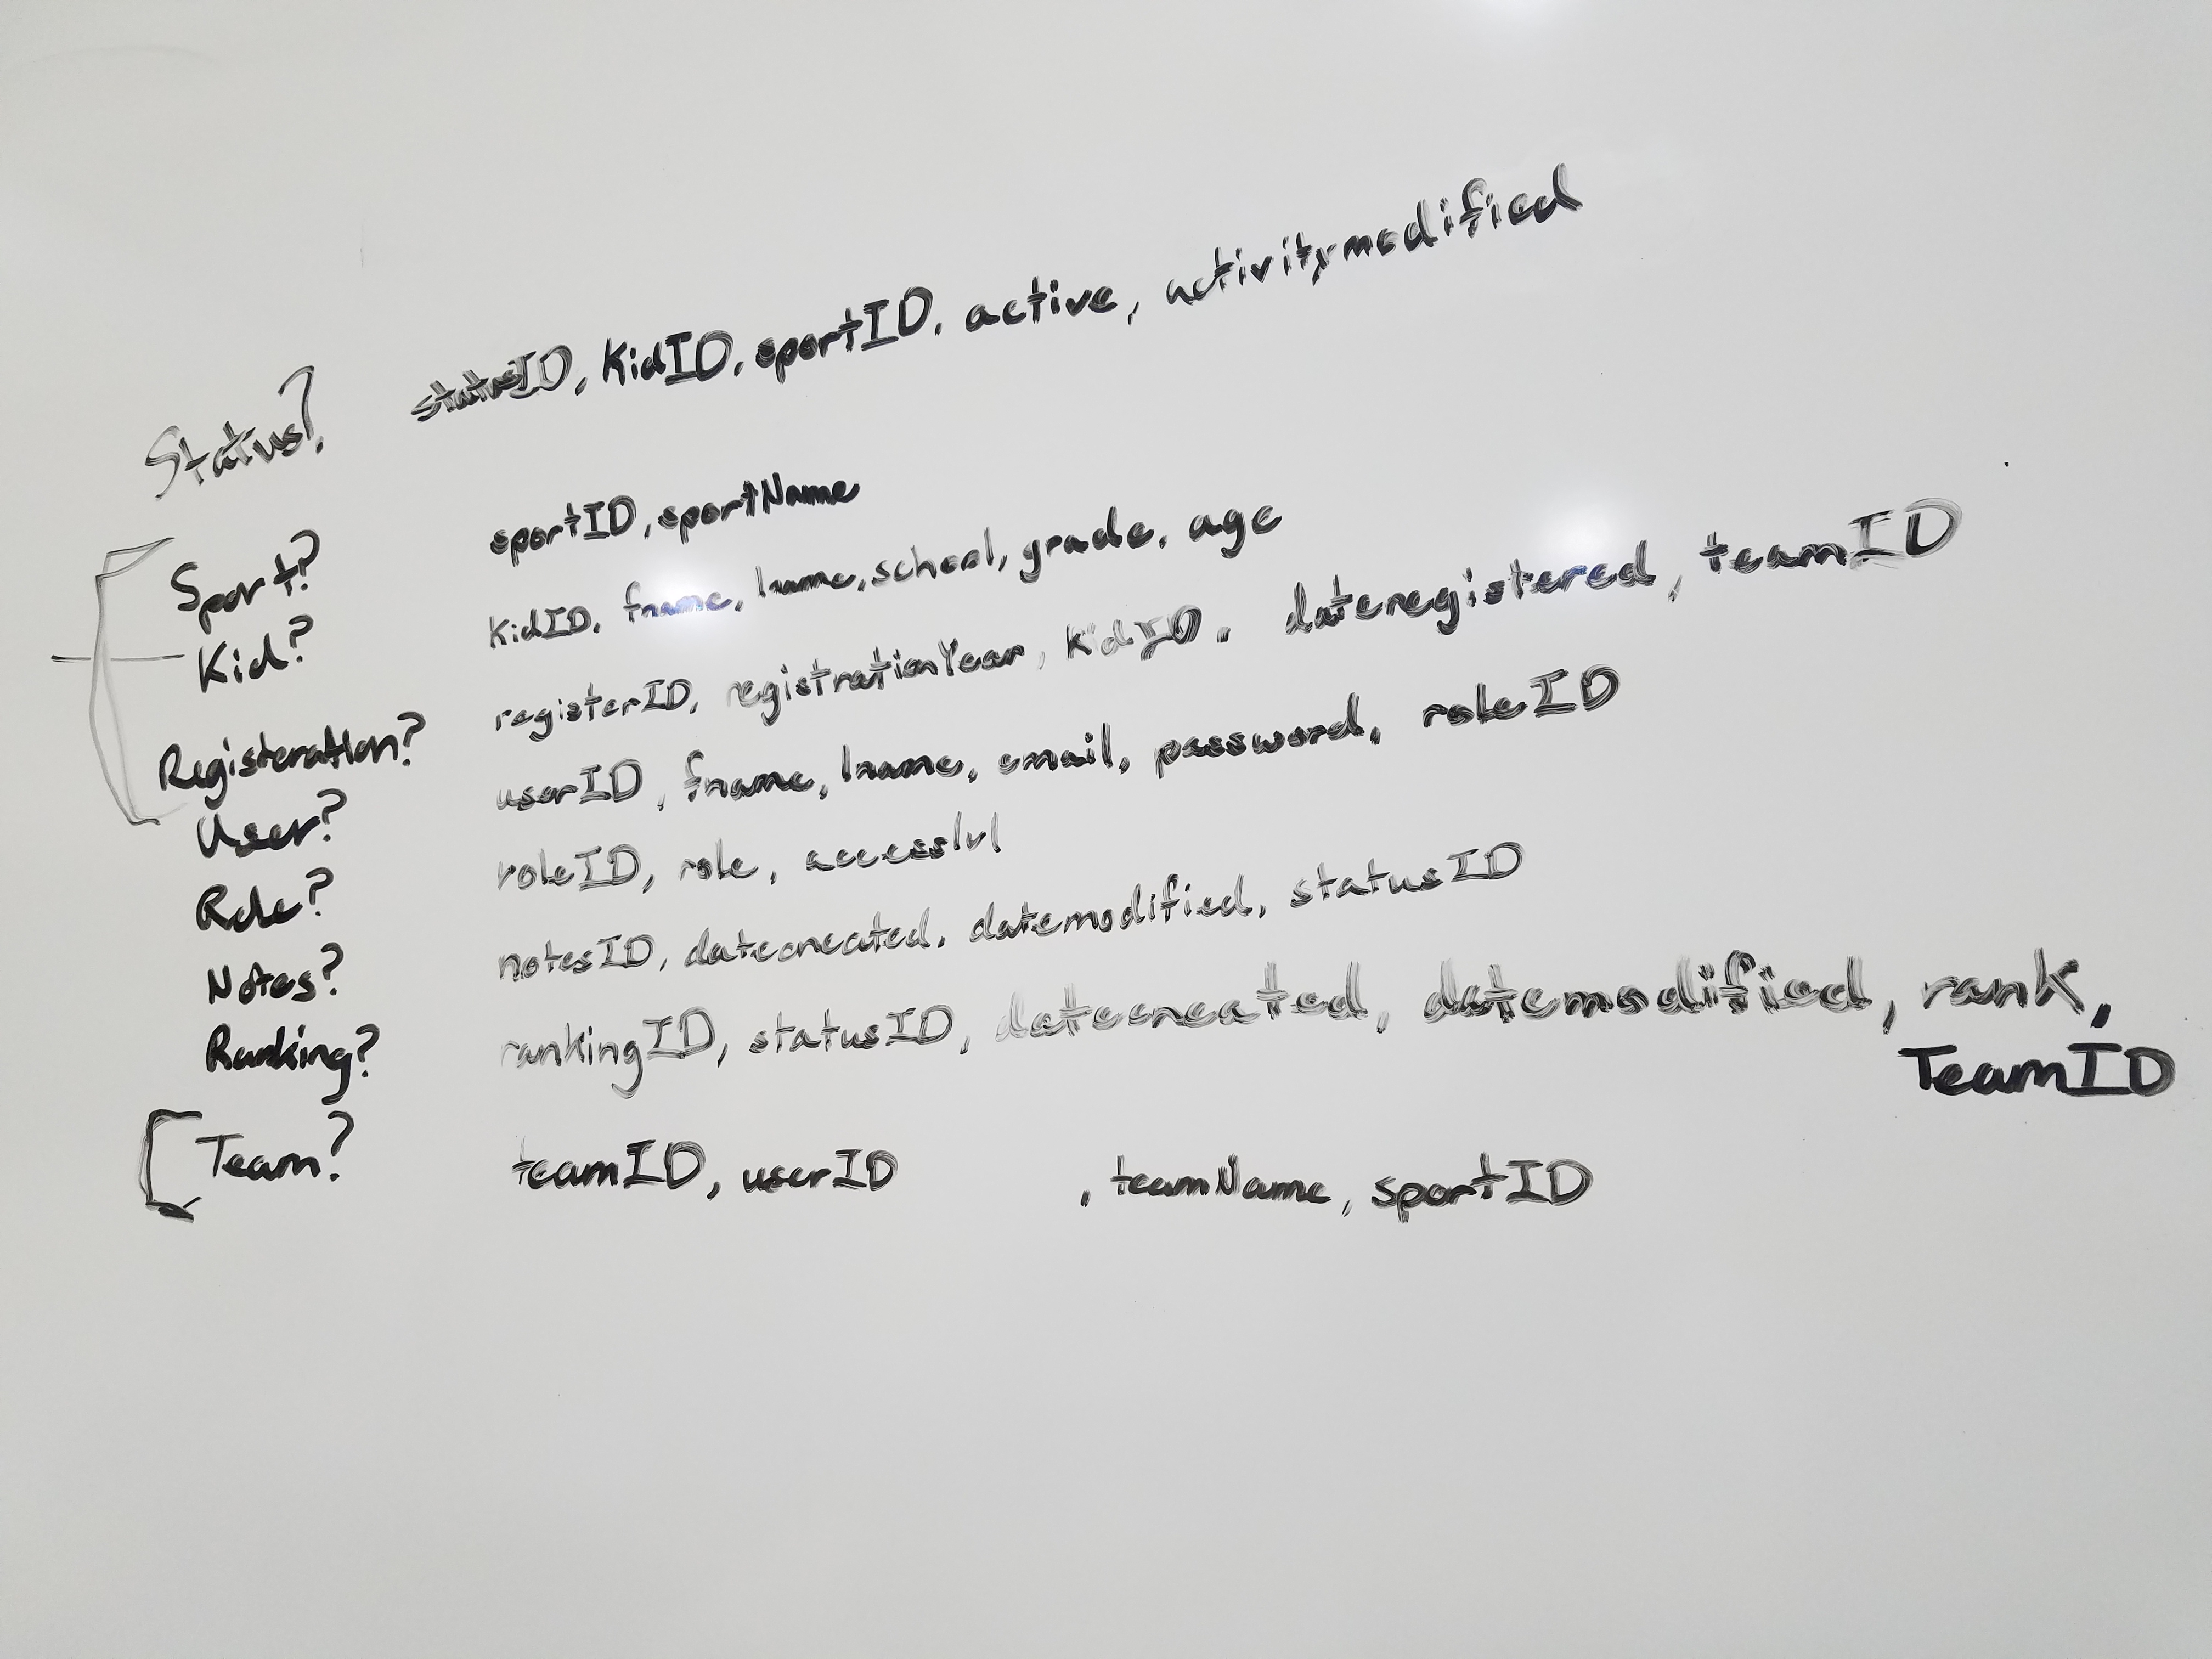 Status? statusID, KidID, sportID, active, activitymodified
Sport? sportID, sportName
Kid? KidID, fname, lname, school, grade, age
Registeration? registerID, registrationYear, KidID, dateregistered, teamID
User? userID, fname, lname, email, password, roleID
Role? roleID, role, accesslvl
Notes? notesID, datecreated, datemodified, statusID
Ranking? rankingID, statusID, datecreated, datemodified, rank,
TeamID
Team? teamID, userID , teamName, sportID